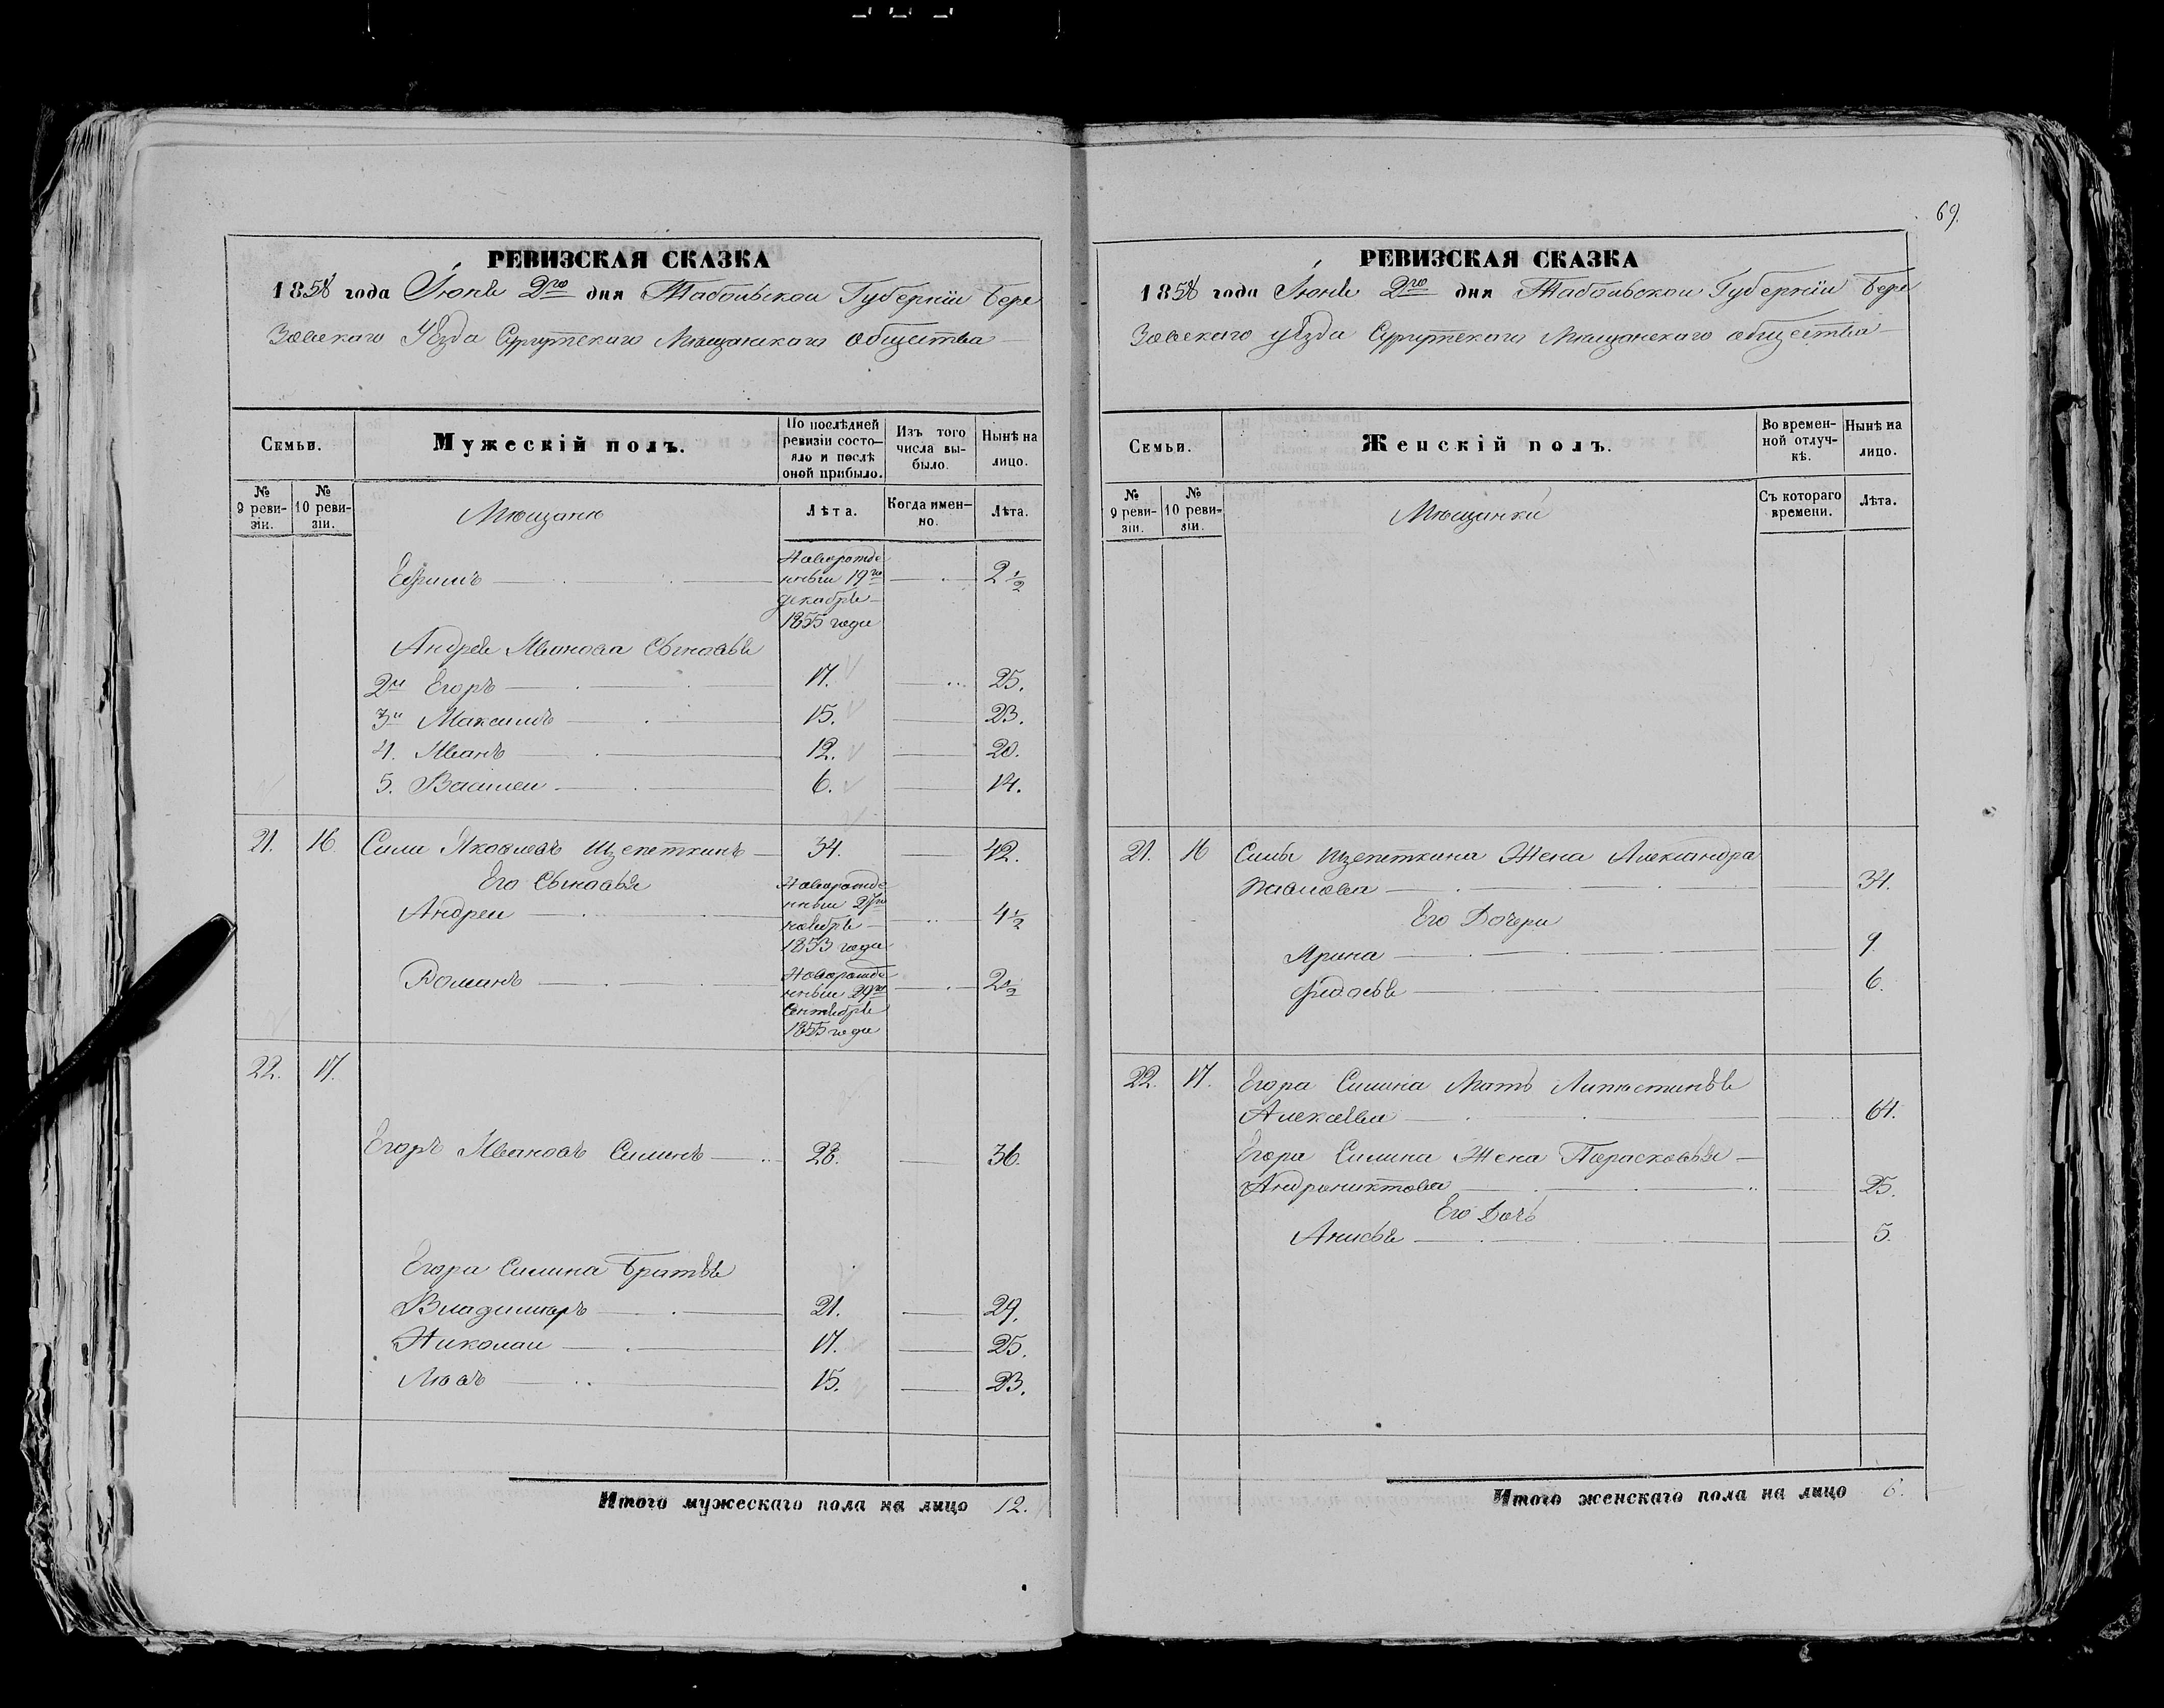 69.
РЕВИЗСКАЯ СКАЗКА
1858 года Іюня 2го дня Табольской Губерніи Бере
зовскаго Уѣзда Сургутскаго Мѣщанскаго общества
Семьи.
Мужескій полъ.
По послѣдней ревизіи состо-
яло и послѣ
оной прибыло.
Изъ того
числа вы-
было.
Нынѣ на
лицо.
№
9 реви-
зіи.
№
10 реви-
зіи.
Мѣщанѣ
Лѣта.
Когда имен-
но.
Лѣта.
Ефимъ
Новорожде
нный 19го
декабря
1855 года
2 1/2
Андрея Иванова Сыновья
2й Егоръ 17. 25.
3й Максимъ 15. 23.
4. Иванъ 12. 20.
5. Василей 6. 14.
21. 16. Сила Яковлевъ Щепеткинъ 34. 42.
Его Сыновья
Андрей
Новорожде
нный 27го
ноября
1853 года
4 1/2
Романъ
Новорожде
нный 29го
Сентября
1855 года
2 1/2
22. 17.
Егоръ Ивановъ Силинъ 28. 36.
Егора Силина Братья
Владимиръ 21. 29.
Николай 17. 25.
Львъ 15. 23.
Итого мужескаго пола на лицо 12.
РЕВИЗСКАЯ СКАЗКА
1858 года Іюня 2го дня Табольской Губерніи Бере
зовскаго уѣзда Сургутскаго Мѣщанскаго общества
Семьи.
Женскій полъ.
Во времен-
ной отлуч-
кѣ.
Нынѣ на
лицо.
№
9 реви-
зіи.
№
10 реви-
зіи.
Мѣщанки
Съ котораго
времени.
Лѣта.
21. 16 Силы Щепеткина Жена Александра
Павлова 34.
Его Дочери
Арина 9.
Федосья 6.
22. 17. Егора Силина Мать
Алексѣева 64.
Егора Силина Жена Парасковья
Андрониктова 25.
Его Дочь
Анисья 5.
Итого женскаго пола на лицо 6.